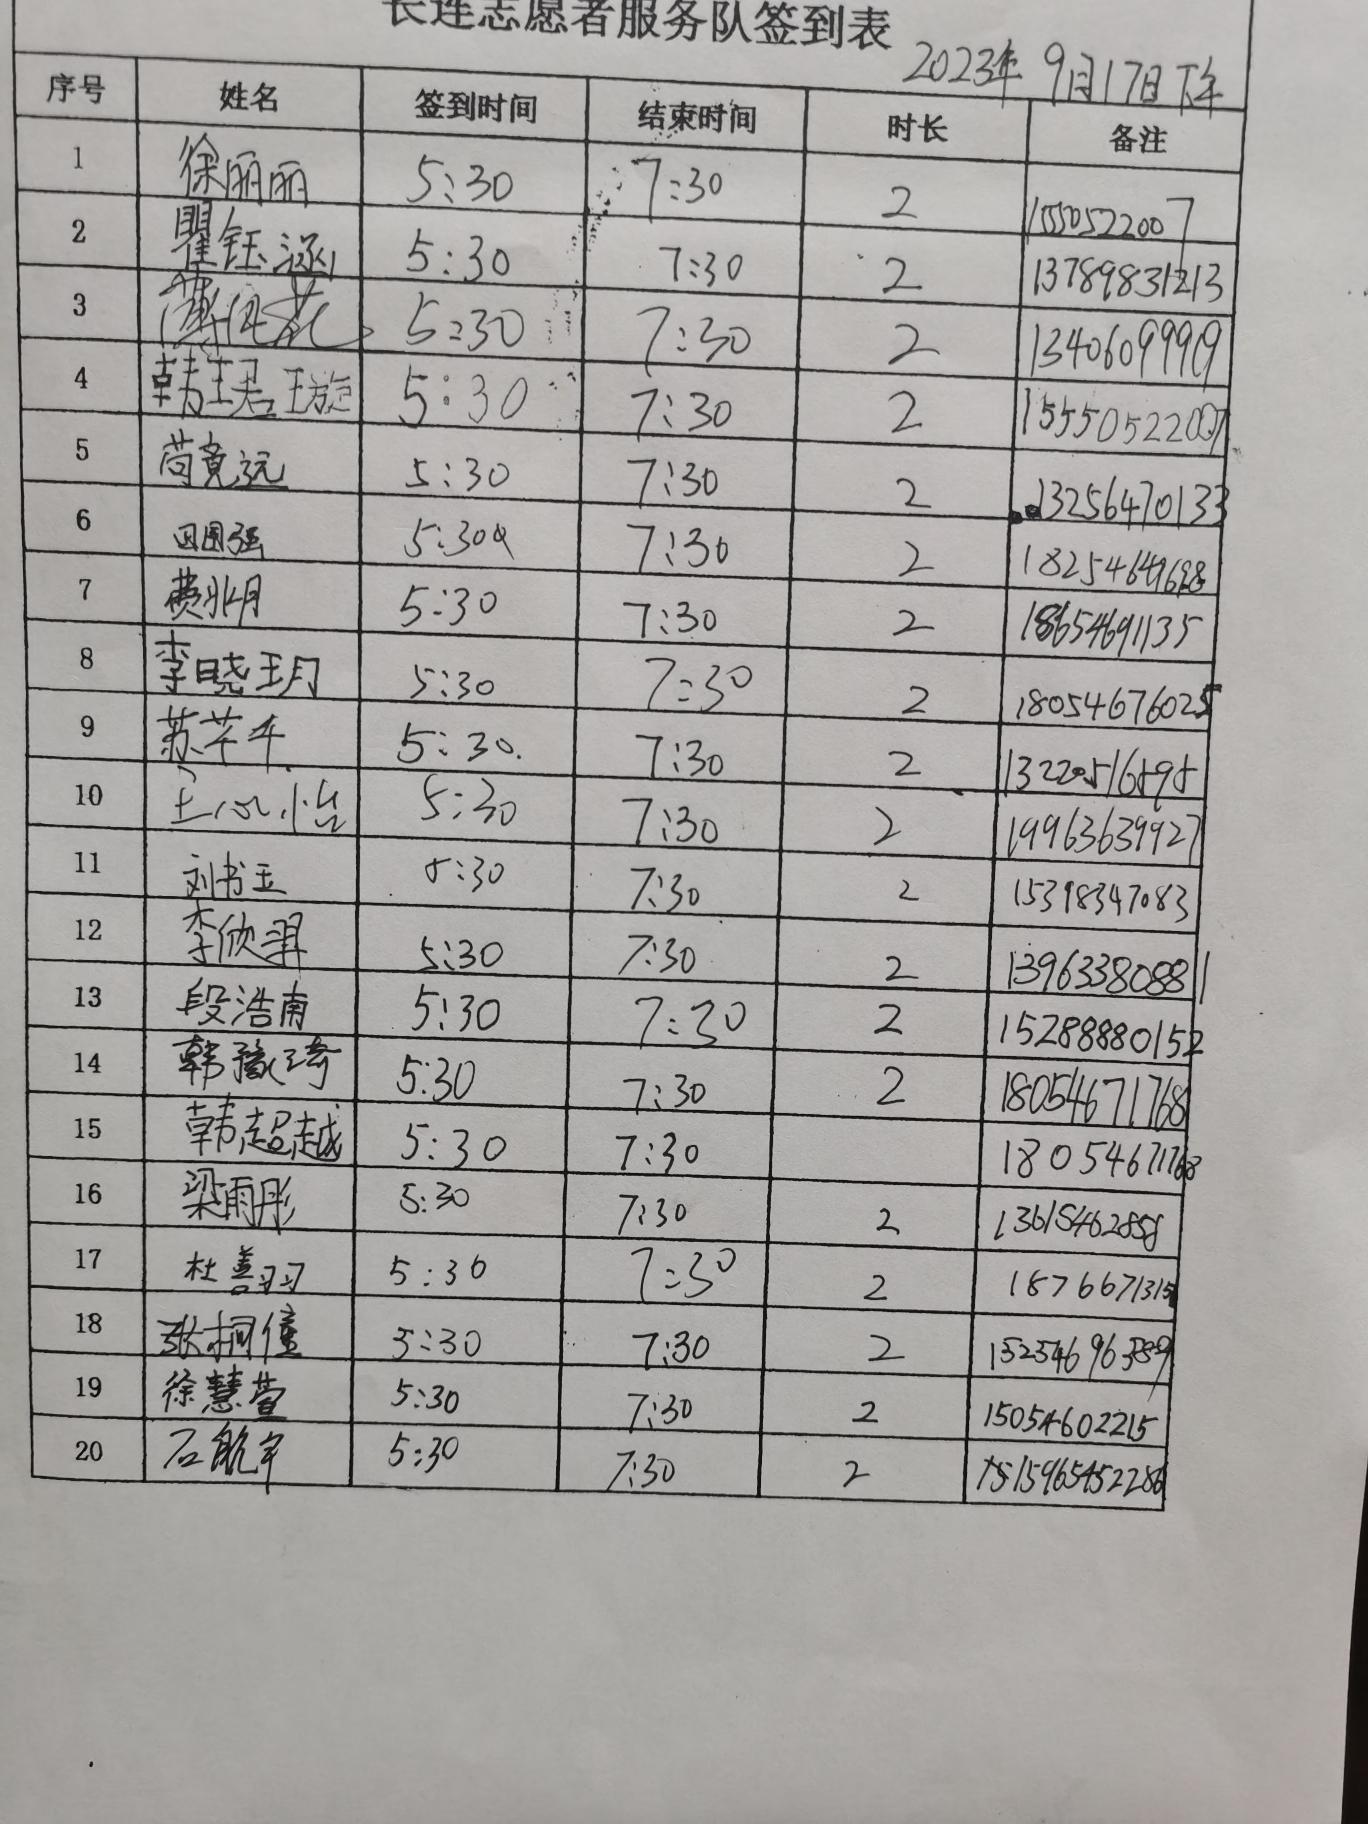 长连志愿者服务队签到表
2023年 9月17日下午
序号 姓名 签到时间 结束时间 时长 备注
1 徐丽丽 5:30 7:30 2 15505222007
2 瞿钰涵 5:30 7:30 2 13789831213
3 5:30 7:30 2 13406099919
4 韩王君 王璇 5:30 7:30 2 15550522007
5 苟竟远 5:30 7:30 2 13256470133
6 田国强 5:30 7:30 2
7 费冰月 5:30 7:30 2 18654691135
8 李晓玥 5:30 7:30 2 18054676025
9 苏芊千 5:30 7:30 2 13220516595
10 王心怡 5:30 7:30 2 19963639927
11 刘书玉 5:30 7:30 2 15398347083
12 李欣羿 5:30 7:30 2 13963380881
13 段浩南 5:30 7:30 2 15288880152
14 韩豫琦 5:30 7:30 2 18054671768
15 韩超越 5:30 7:30 18054671768
16 梁雨彤 5:30 7:30 2 13615462858
17 杜善习习 5:30 7:30 2 18766671315
18 张桐僮 5:30 7:30 2 15254696389
19 徐慧萱 5:30 7:30 2 15054602215
20 石航宇 5:30 7:30 2